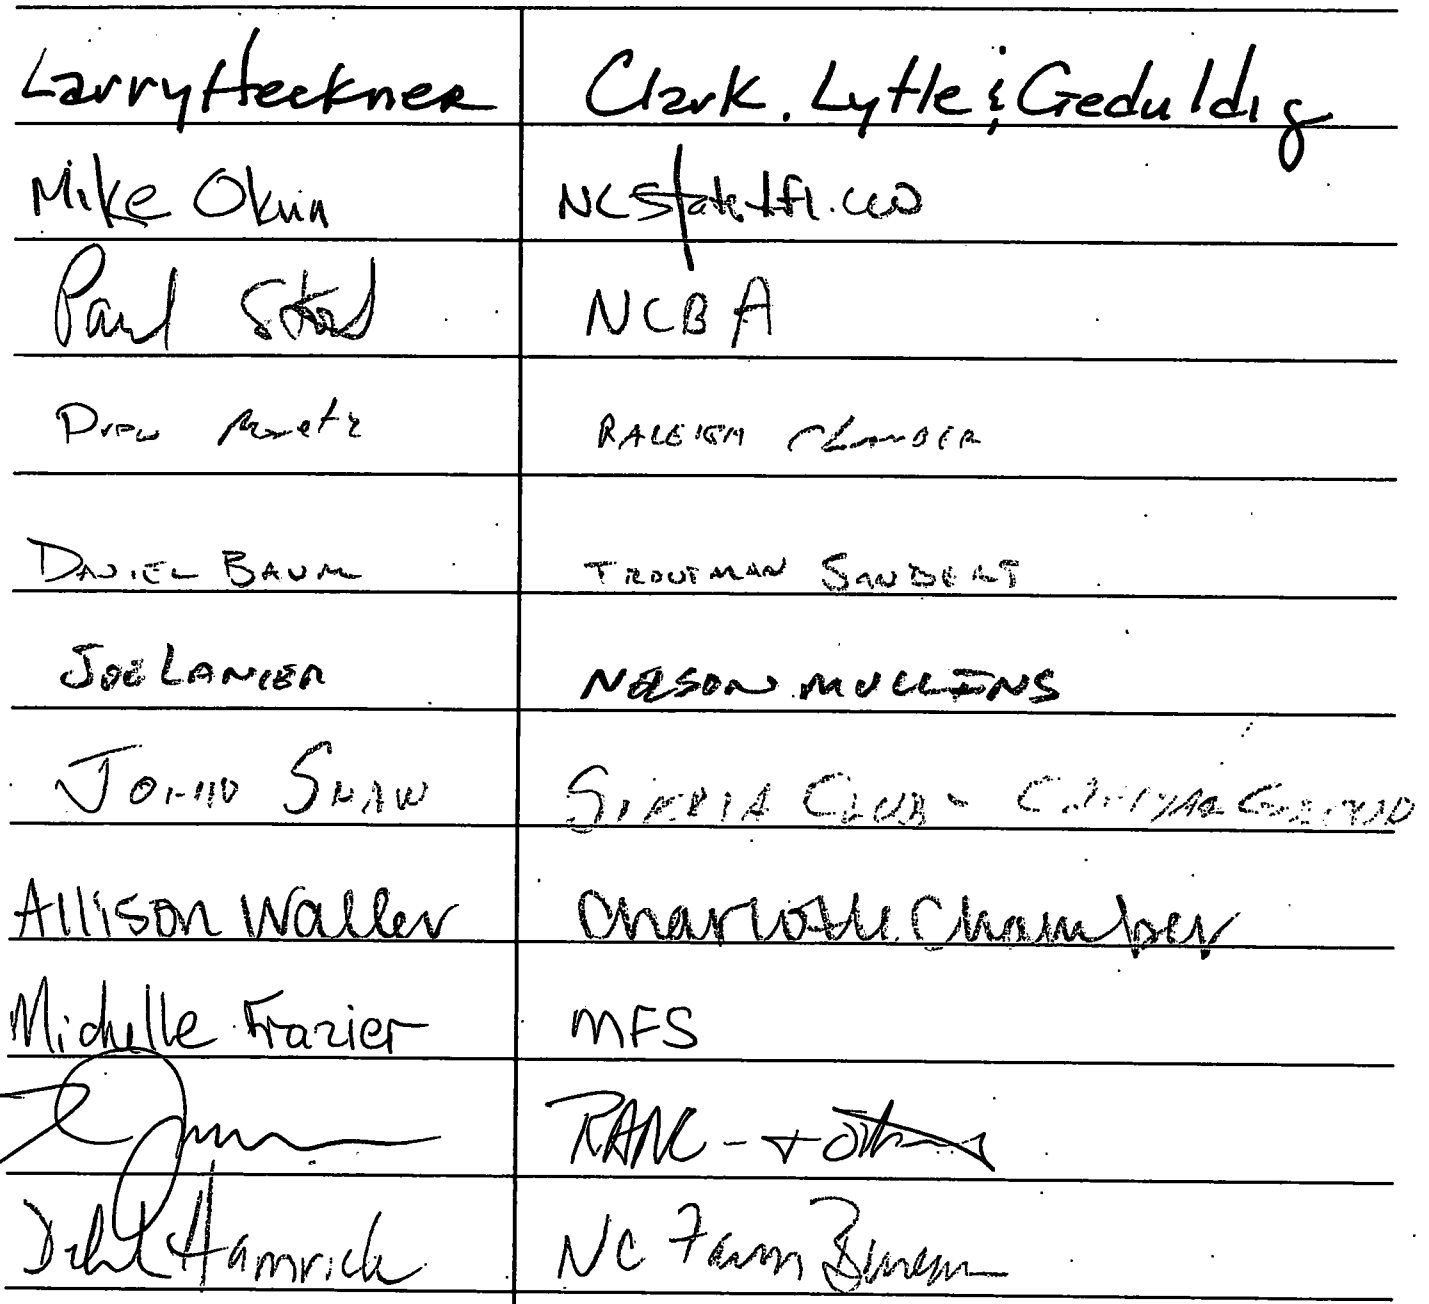 Larry Heckner Clark. Lytle & Geduldig
Mike Okun NC State AFL-CIO
Paul Stock NCBA
Drew Moretz RALEIGH CHAMBER
DANIEL BAUM TROUTMAN SANDERS
JOE LANIER NELSON MULLINS
JOHN SHAW SIERRA CLUB -
Allison Waller Charlotte Chamber
Michelle Frazier MFS
RANC - + others
Hamrick NC Farm Bureau